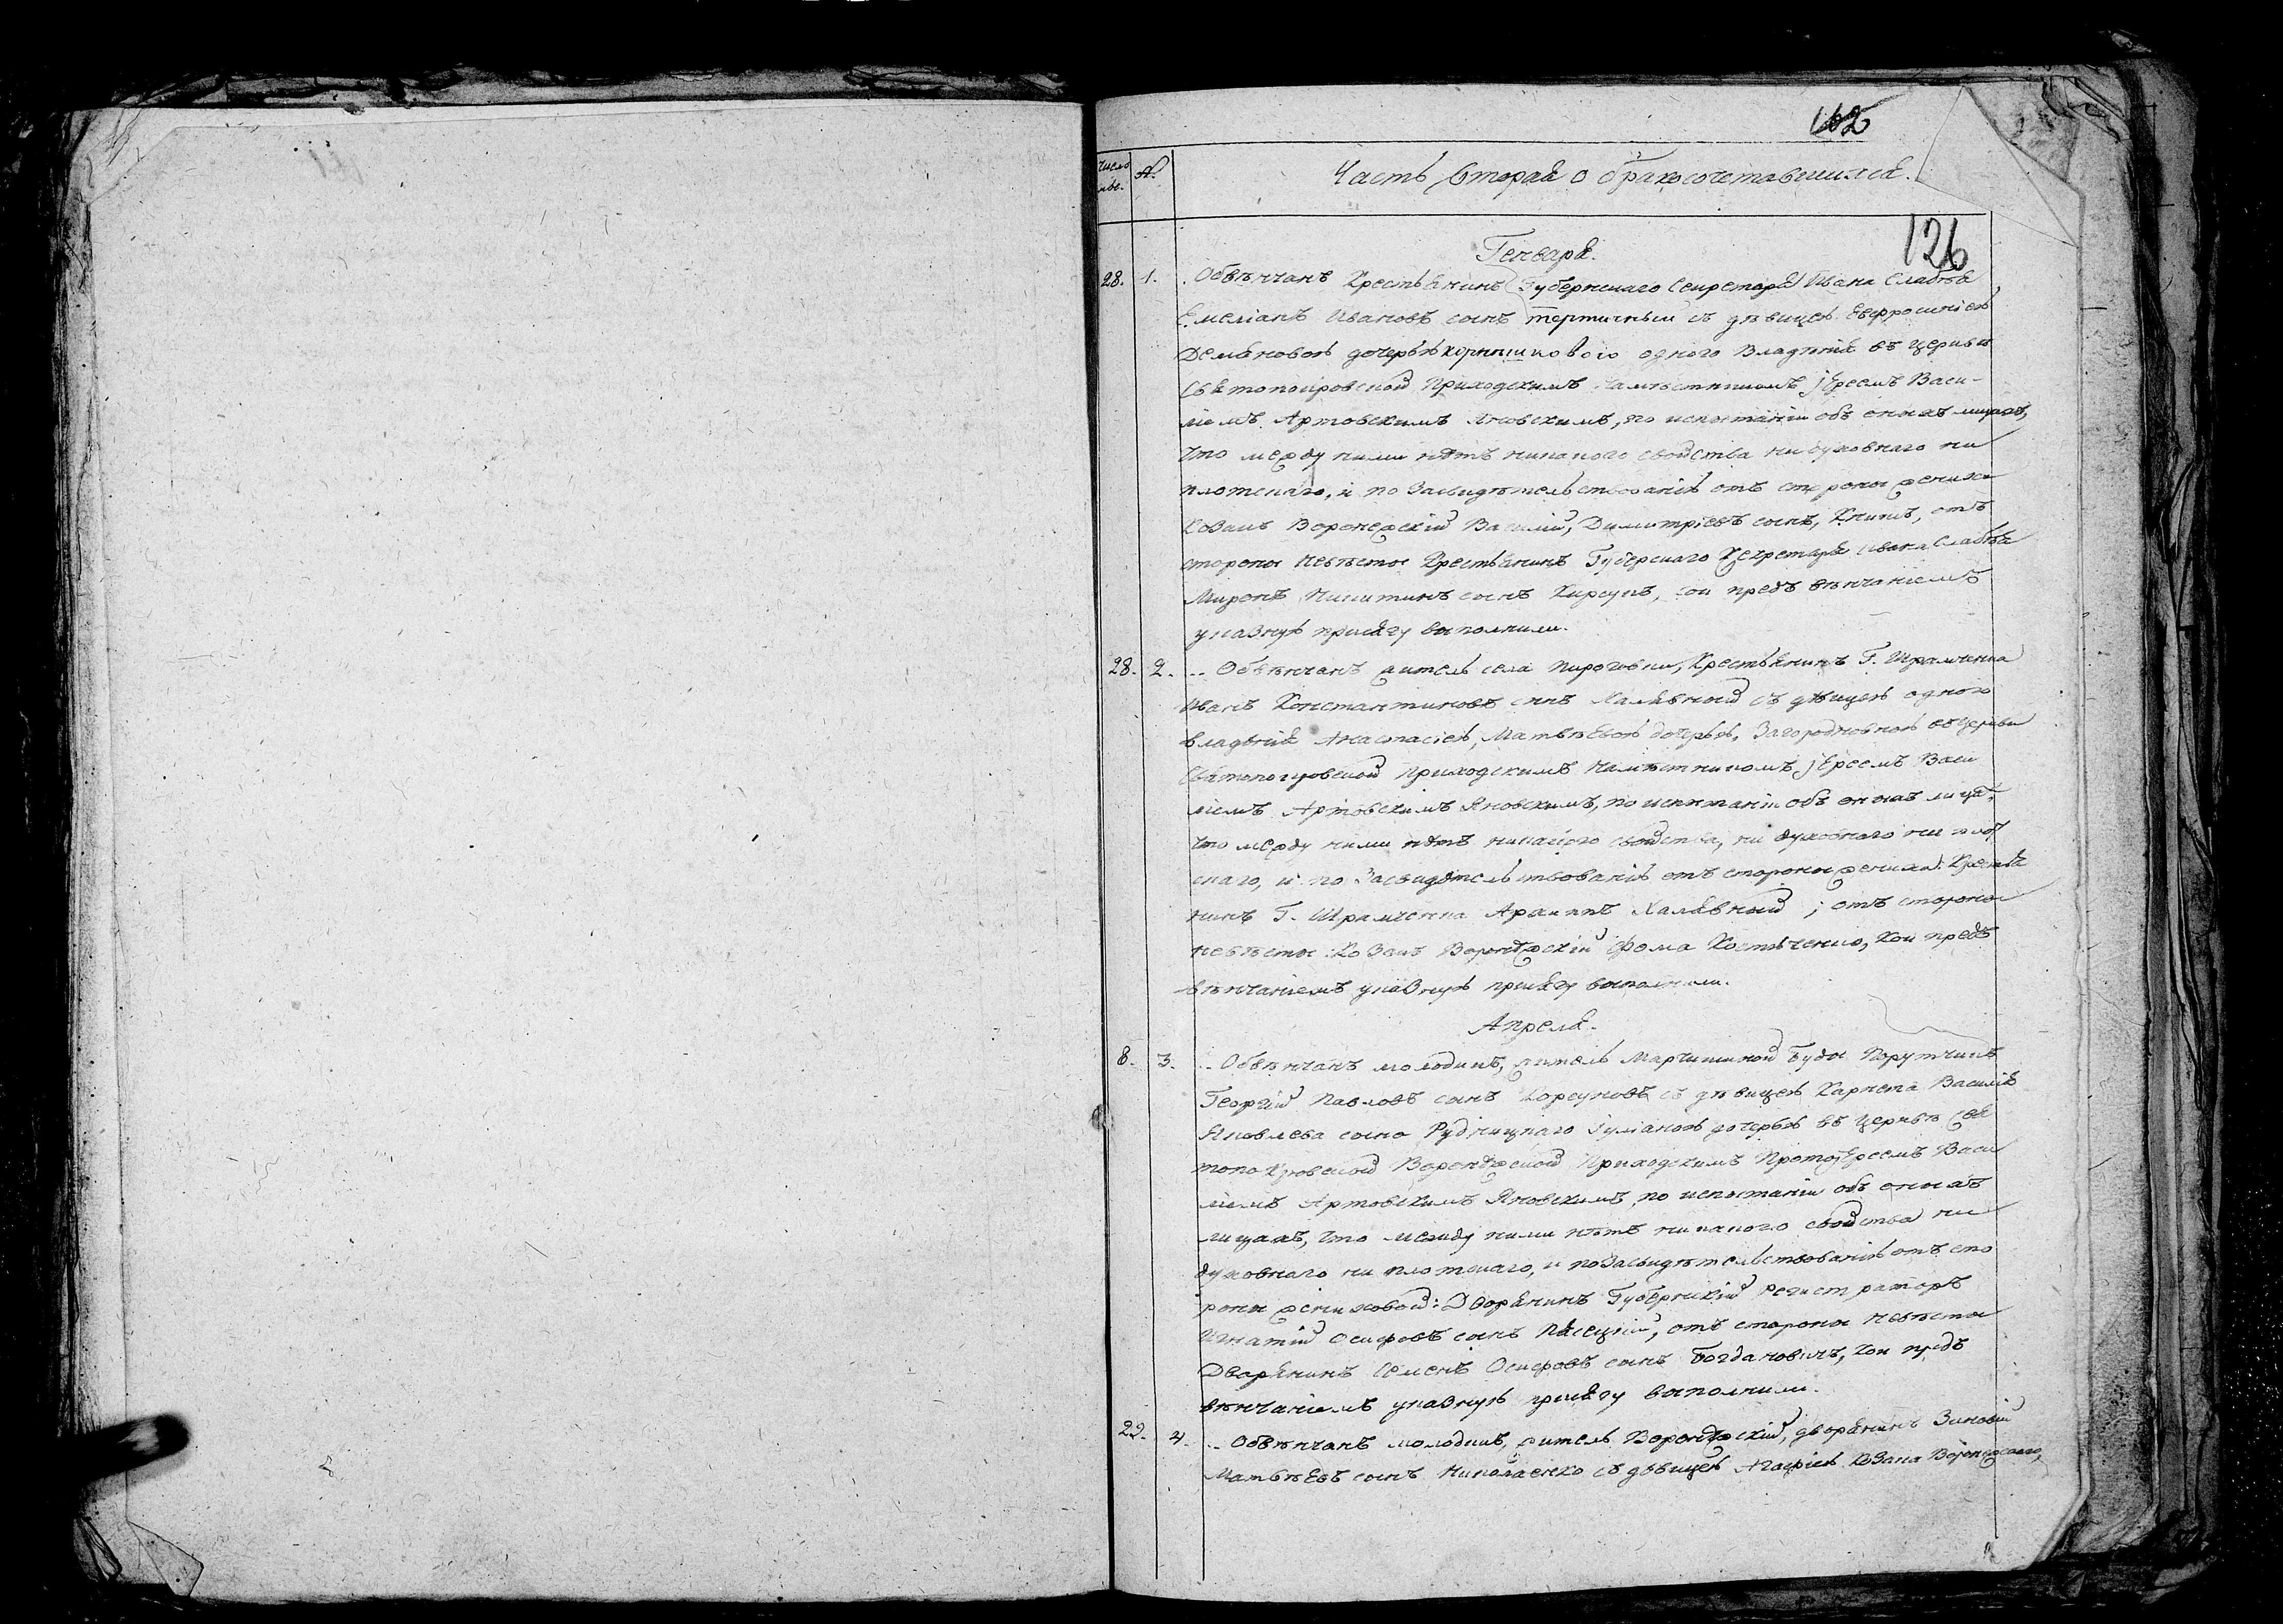 162
Число
мѣс. №. Часть вторая о бракосочетавшихся.
126
Генваря.
28. 1. Обвѣнчанъ Крестьянинъ Губернскаго Секретаря Ивана Слабѣя
Емеліанъ Ивановъ сынъ съ дѣвицею Евфросиніею
Демяновою дочерью одного владѣнія въ церкви
Святопокровской Приходскимъ Намѣстникомъ Іереемъ Васи-
ліемъ Артовскимъ Яновскимъ, по испытаніи объ оныхъ лицахъ,
что между ними нѣтъ никакого свойства ни духовнаго ни
плотскаго, и по засвидѣтельствованію отъ стороны жениха
Козакъ Воронежскій Василій, Димитріевъ сынъ, отъ
стороны невѣсты Крестьянинъ Губерскаго Секретаря Ивана Слабѣя
Миронъ Никитинъ сынъ Кирсунъ, кои предъ вѣнчаніемъ
указную присягу выполнили.
28. 2. Обвѣнчанъ житель села Пироговки, Крестьянинъ Г. Шрамченка
Иванъ Константиновъ снъ Халявный съ дѣвицею одного
владѣнія Анастасіею, Матвѣевою дочерью, Загородновною въ церкви
Святопокровской приходскимъ Намѣстникомъ Іереемъ Васи
ліемъ Артовскимъ Яновскимъ, по испытаніи объ оныхъ лица,
что между ними нѣтъ никакого свойства, ни духовнаго ни плот
скаго, и по засвидѣтельствованію отъ стороны жениха: Крестья
нинъ Г. Шрамченка Архипъ Халявный; отъ стороны
невѣсты: Козакъ Воронежскій Фома Костюченко, кои предъ
вѣнчаніемъ указную присягу выполнили.
Апреля.
8. 3. Обвѣнчанъ молодикъ, житель Марчишиной Буды Порутчикъ
Георгій Павловъ сынъ Корсуновъ съ дѣвицею Карнета Василія
Яковлева сына Рудницкаго Іуліаною дочерью въ церквѣ Свя
топокровской Воронежской Приходскимъ Протоіереемъ Васи
ліемъ Артовскимъ Яновскимъ, по испытаніи объ оныхъ
лицахъ, что между ними нѣтъ никакого свойства ни
духовнаго ни плотскаго, и по засвидѣтельствованію отъ сто
роны жениховой: Дворянинъ Губернскій Регистраторъ
Игнатій Осифовъ сынъ Пясецкій, отъ стороны невѣсты
Дворянинъ Семенъ Осифовъ сынъ Богдановичъ, кои предъ
вѣнчаніемъ указную присягу выполнили.
22. 4. Обвѣнчанъ молодикъ, житель Воронежскій, дворянинъ Зиновій
Матвѣевъ сынъ Николаенко съ дѣвицею Агафіею Козака Воронежскаго,